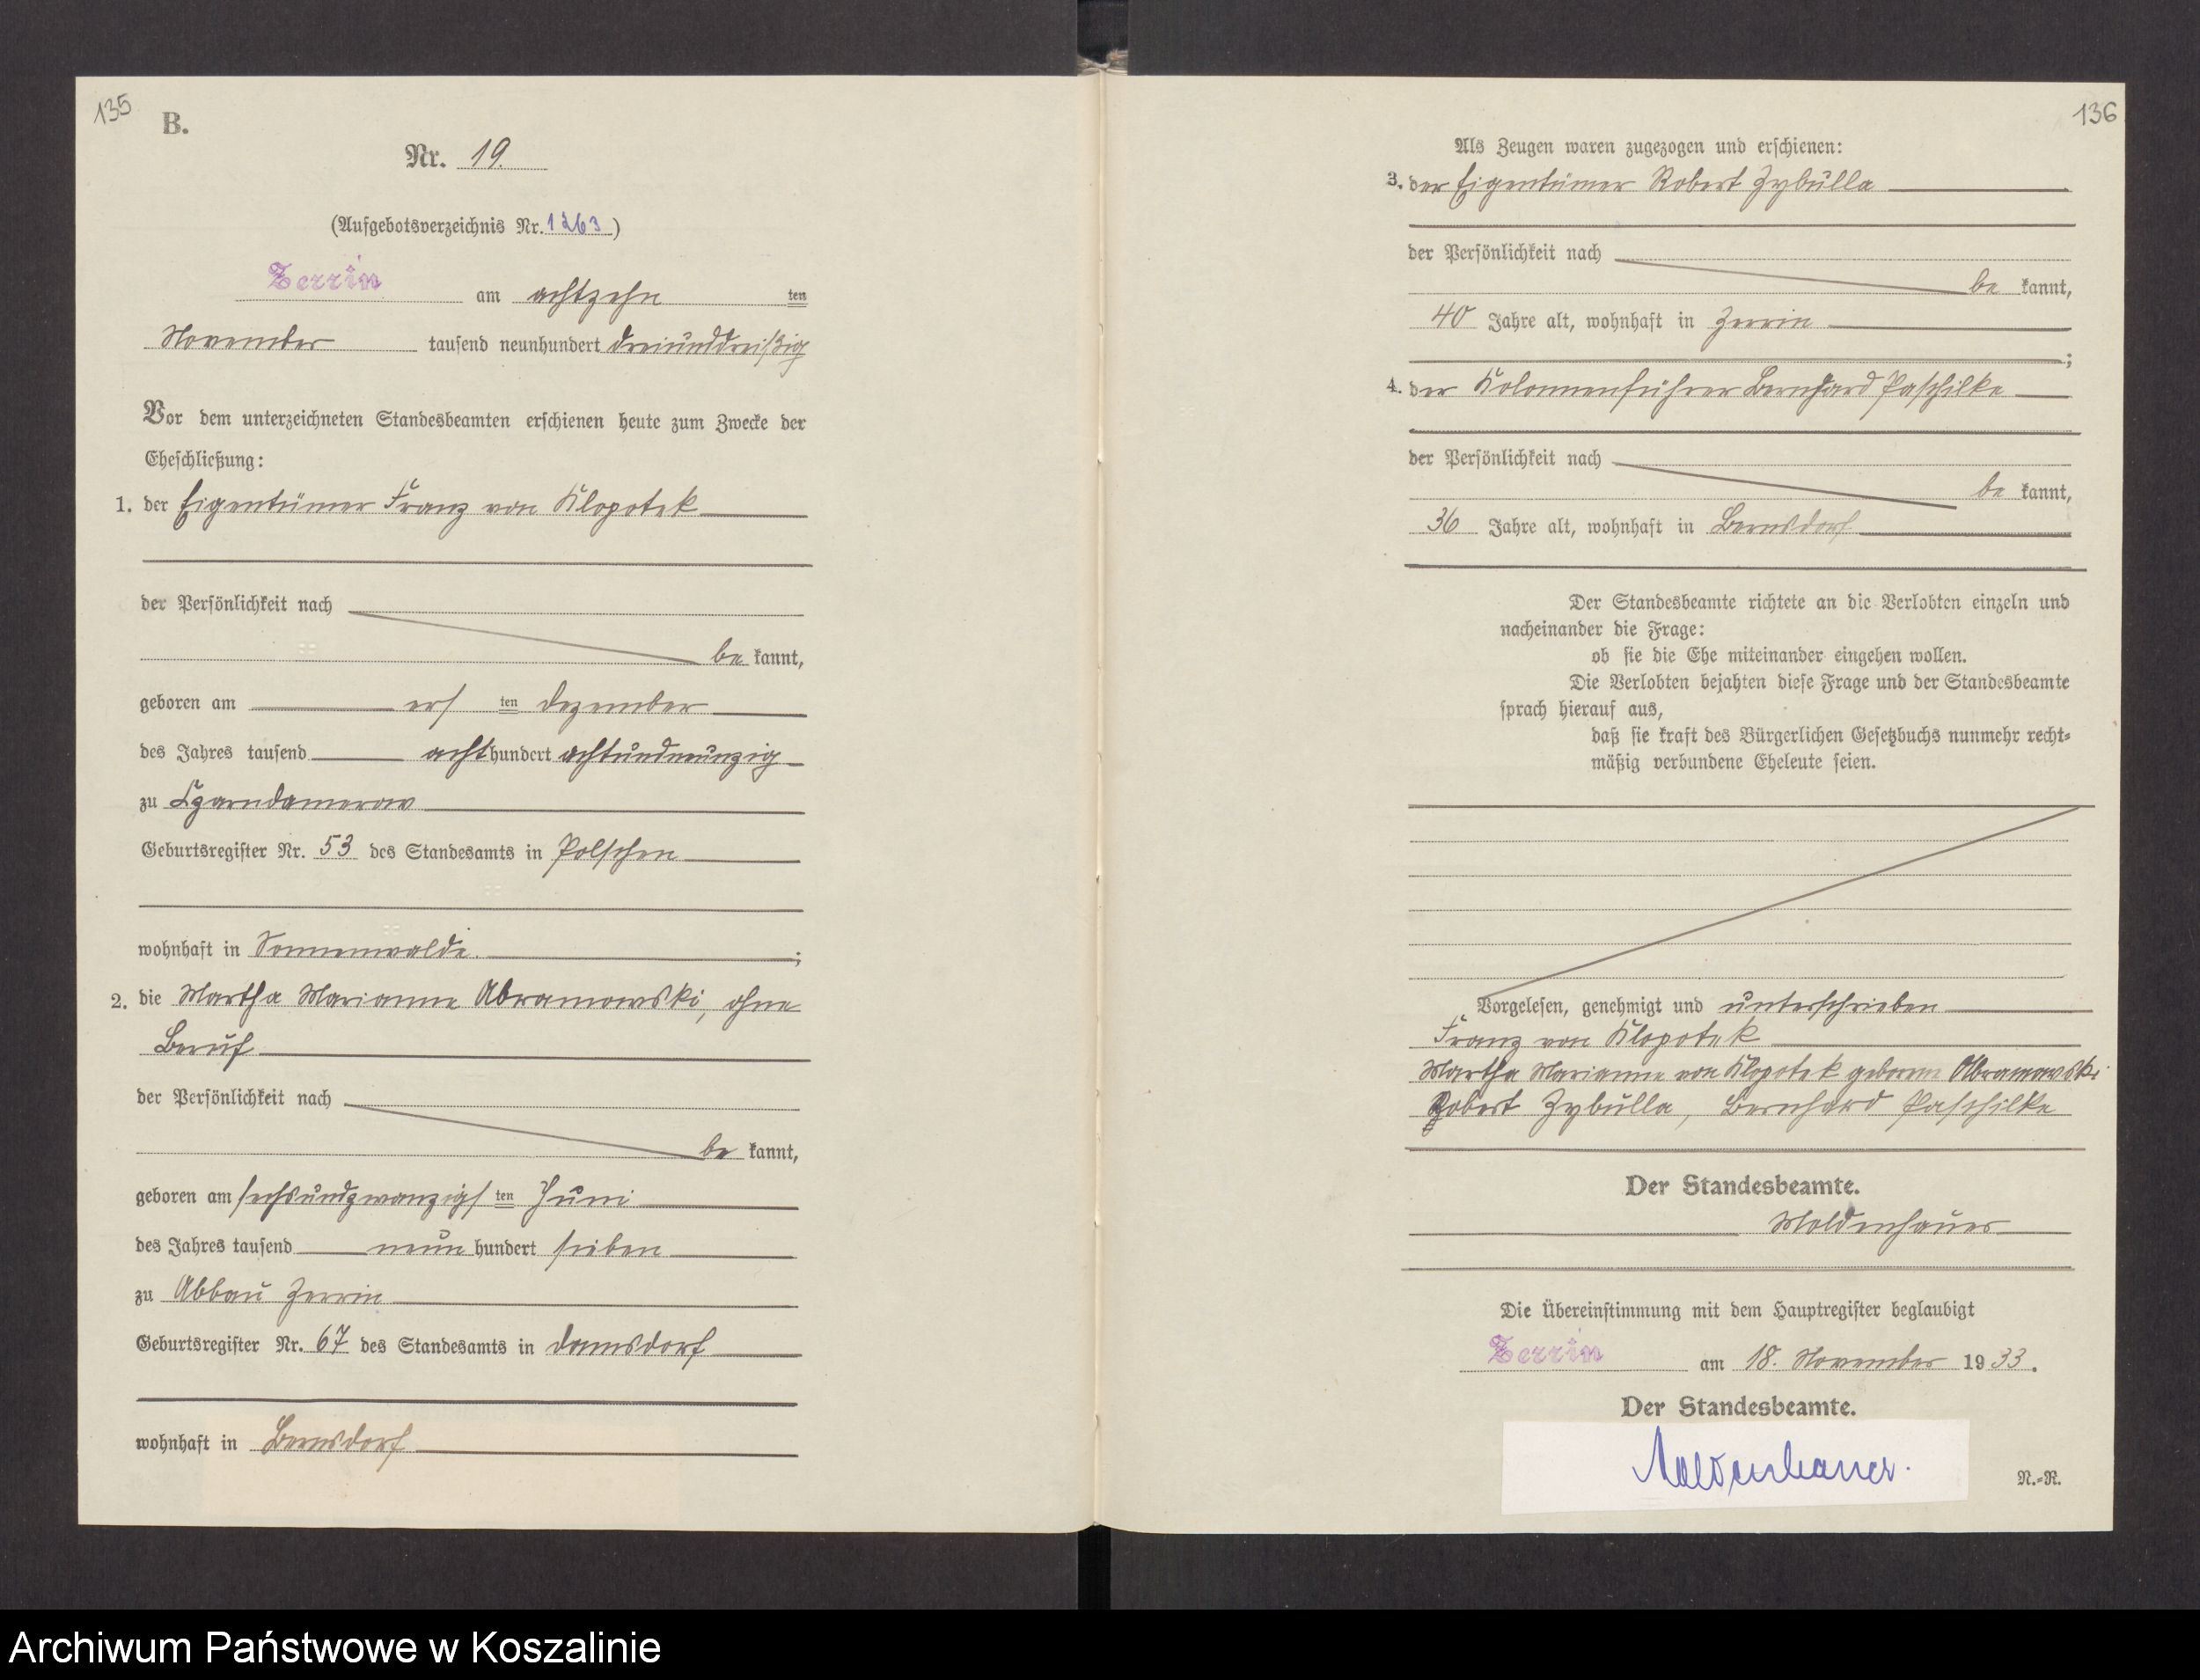 135
B.
Nr. 19.
(Aufgebotsverzeichnis Nr. 1263)
Zerrin am achtzehn ten
November tausend neunhundert dreiunddreißig
Vor dem unterzeichneten Standesbeamten erschienen heute zum Zwecke der
Eheschließung:
1. der Eigentümer Franz von Klopotek
der Persönlichkeit nach
be kannt,
geboren am ers ten Dezember
des Jahres tausend acht hundert achtundneunzig
zu Czarndamerow
Geburtsregister Nr. 53 des Standesamts in Polschen
wohnhaft in Sonnenwalde. ;
2. die Martha Marianne Abramowski, ohne
Beruf
der Persönlichkeit nach
be kannt,
geboren am sechsundzwanzigs ten Juni
des Jahres tausend neun hundert sieben
zu Abbau Zerrin
Geburtsregister Nr. 67 des Standesamts in Damsdorf
wohnhaft in Bernsdorf
136
Als Zeugen waren zugezogen und erschienen:
3. der Eigentümer Robert Zybulla
der Persönlichkeit nach
be kannt,
40 Jahre alt, wohnhaft in Zerrin
;
4. der Kolonnenführer Bernhard Paschilke
der Persönlichkeit nach
be kannt,
36 Jahre alt, wohnhaft in Bernsdorf
Der Standesbeamte richtete an die Verlobten einzeln und
nacheinander die Frage:
ob sie die Ehe miteinander eingehen wollen.
Die Verlobten bejahten diese Frage und der Standesbeamte
sprach hierauf aus,
daß sie kraft des Bürgerlichen Gesetzbuchs nunmehr recht-
mäßig verbundene Eheleute seien.
Vorgelesen, genehmigt und unterschrieben
Franz von Klopotek
Martha Marianne von Klopotek geborene Abramowski
Robert Zybulla, Bernhard Paschilke
Der Standesbeamte.
Moldenhauer
Die Übereinstimmung mit dem Hauptregister beglaubigt
Zerrin am 18. November 19 33.
Der Standesbeamte.
Moldenhauer.
N.-R.
Archiwum Państwowe w Koszalinie